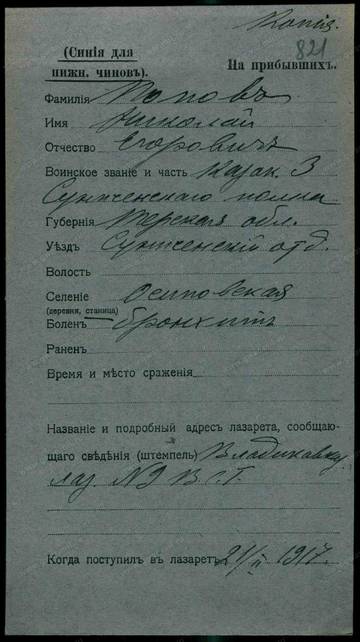 Копія.
821
(Синія для
нижн. чиновъ).
На прибывшихъ.
Фамилія Поповъ
Имя Николай
Отчество Егоровичъ
Воинское званіе и часть Казак. 3
Сунженскаго полка
Губернія Терская обл.
Уѣздъ Сунженскій отд.
Волость
Селеніе Осиповская
(деревня, станица)
Боленъ бронхитъ
Раненъ
Время и мѣсто сраженія
Названіе и подробный адресъ лазарета, сообщаю-
щаго свѣдѣнія (штемпель) Владикавказ.
лаз. В.С.Г.
Когда поступилъ въ лазаретъ 21/II 1917.